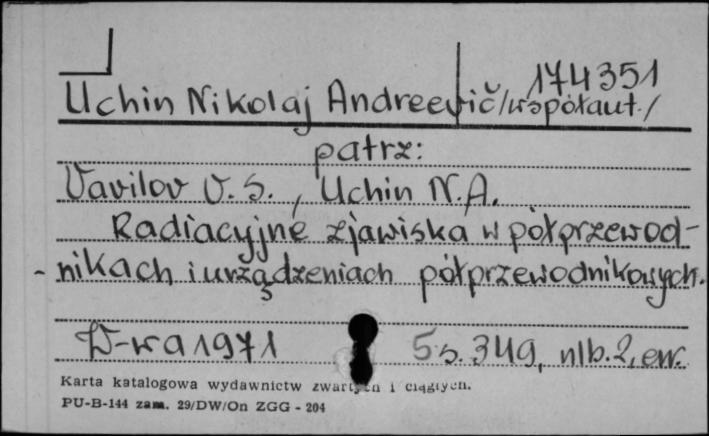 174351
Uchin Nikolaj Andreevič/współaut./
patrz:
Vavilov V. S., Uchin N.A.
Radiacyjne zjawiska w półprzewod-
-nikach i urządzeniach półprzewodnikowych.
W-wa 1971 Ss. 349, nlb. 2, err.
Karta katalogowa wydawnictw zwartych i ciągłych.
PU-B-144 zam. 29/DW/On ZGG - 204